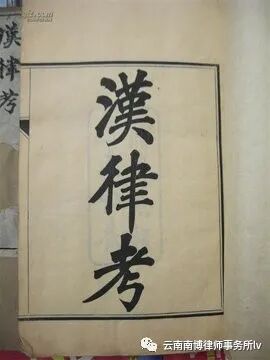 漢律考
漢律考
云南南博律师事务所lv